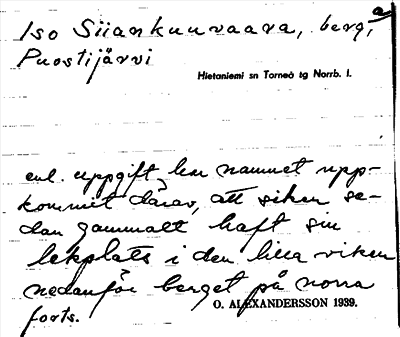 a
Iso Siiankuuvaara, berg,
Puostijärvi
Hietaniemi sn Torneå tg Norrb. l.
enl. uppgift har namnet upp-
kommit därav, att siken se-
dan gammalt haft sin
lekplats i den lilla viken
nedanför berget på norra
O. ALEXANDERSSON 1939.
forts.